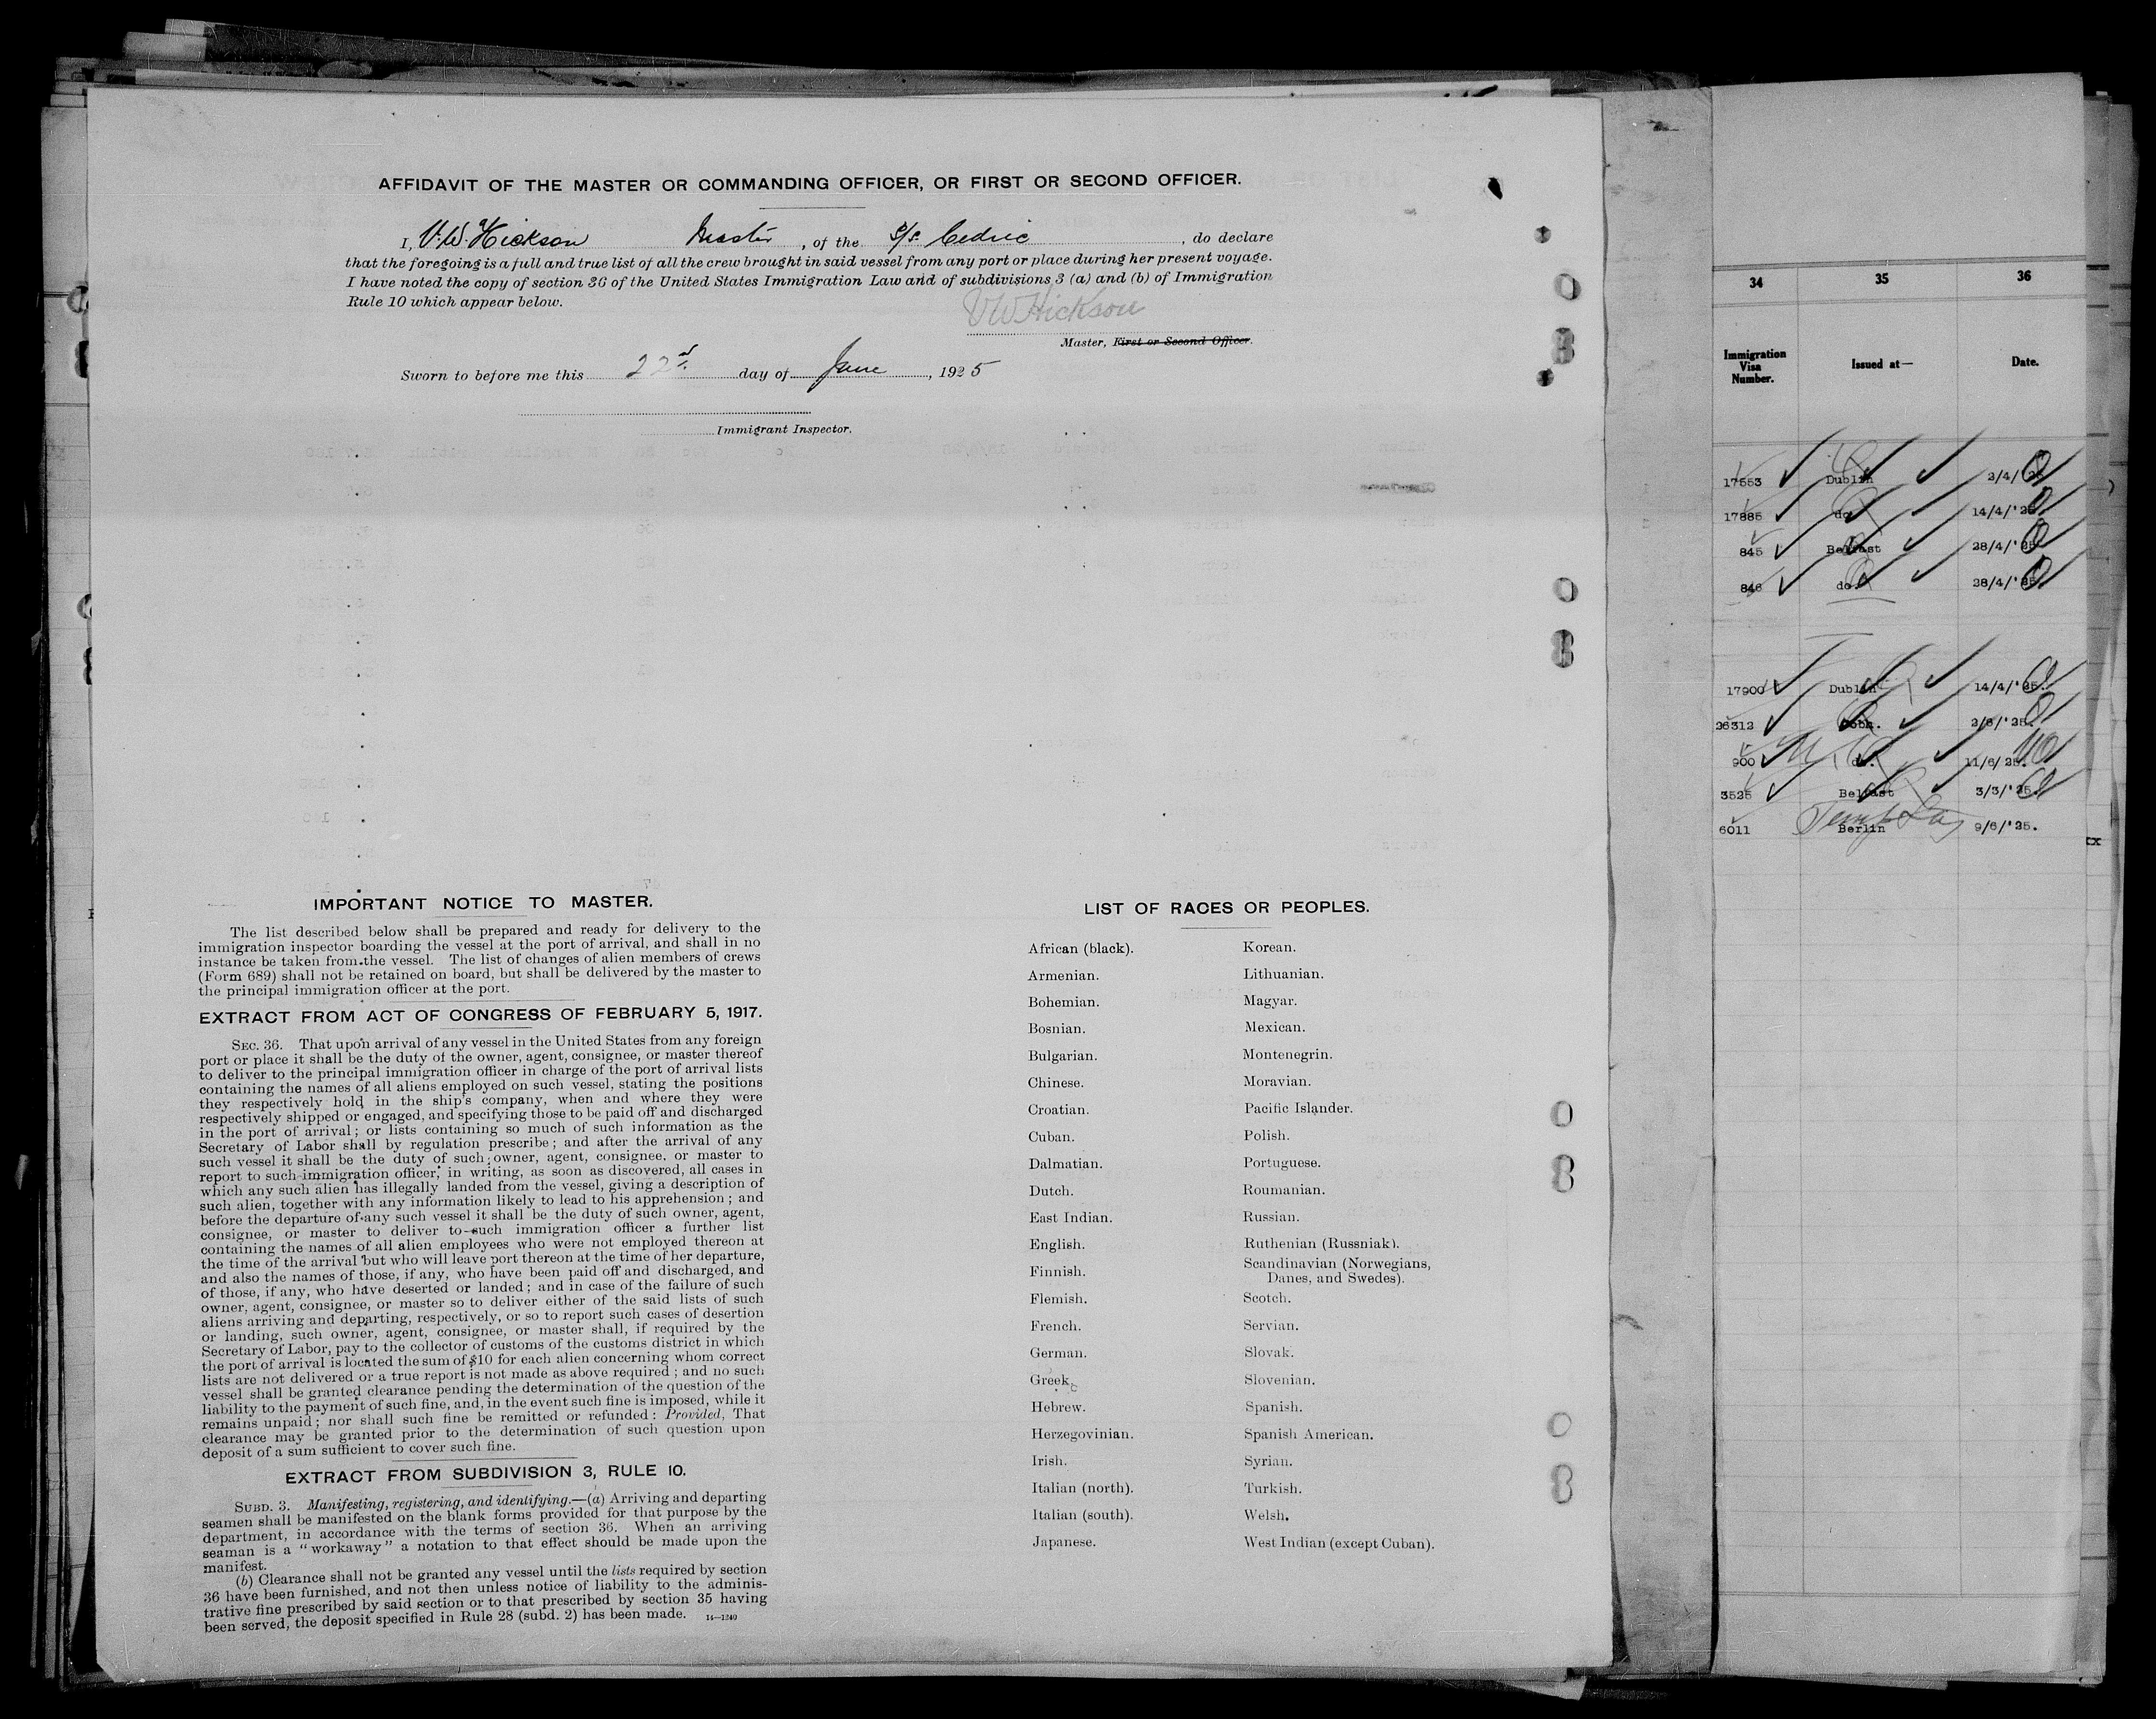 AFFIDAVIT OF THE MASTER OR COMMANDING OFFICER, OR FIRST OR SECOND OFFICER.
I, V. W. Hickson Master, of the S/S. Cedric, do declare
that the foregoing is a full and true list of all the crew brought in said vessel from any port or place during her present voyage.
I have noted the copy of section 36 of the United States Immigration Law and of subdivisions 3 (a) and (b) of Immigration
Rule 10 which appear below.
V W Hickson
Master, First or Second Officer.
Sworn to before me this 22nd day of June, 1925
Immigrant Inspector.
IMPORTANT NOTICE TO MASTER.
The list described below shall be prepared and ready for delivery to the
immigration inspector boarding the vessel at the port of arrival, and shall in no
instance be taken from the vessel. The list of changes of alien members of crews
(Form 689) shall not be retained on board, but shall be delivered by the master to
the principal immigration officer at the port.
EXTRACT FROM ACT OF CONGRESS OF FEBRUARY 5, 1917.
SEC. 36. That upon arrival of any vessel in the United States from any foreign
port or place it shall be the duty of the owner, agent, consignee, or master thereof
to deliver to the principal immigration officer in charge of the port of arrival lists
containing the names of all aliens employed on such vessel, stating the positions
they respectively hold in the ship's company, when and where they were
respectively shipped or engaged, and specifying those to be paid off and discharged
in the port of arrival; or lists containing so much of such information as the
Secretary of Labor shall by regulation prescribe; and after the arrival of any
such vessel it shall be the duty of such owner, agent, consignee, or master to
report to such immigration officer, in writing, as soon as discovered, all cases in
which any such alien has illegally landed from the vessel, giving a description of
such alien, together with any information likely to lead to his apprehension; and
before the departure of any such vessel it shall be the duty of such owner, agent,
consignee, or master to deliver to such immigration officer a further list
containing the names of all alien employees who were not employed thereon at
the time of the arrival but who will leave port thereon at the time of her departure,
and also the names of those, if any, who have been paid off and discharged, and
of those, if any, who have deserted or landed; and in case of the failure of such
owner, agent, consignee, or master so to deliver either of the said lists of such
aliens arriving and departing, respectively, or so to report such cases of desertion
or landing, such owner, agent, consignee, or master shall, if required by the
Secretary of Labor, pay to the collector of customs of the customs district in which
the port of arrival is located the sum of $10 for each alien concerning whom correct
lists are not delivered or a true report is not made as above required; and no such
vessel shall be granted clearance pending the determination of the question of the
liability to the payment of such fine, and, in the event such fine is imposed, while it
remains unpaid; nor shall such fine be remitted or refunded: Provided, That
clearance may be granted prior to the determination of such question upon
deposit of a sum sufficient to cover such fine.
EXTRACT FROM SUBDIVISION 3, RULE 10.
SUBD. 3. Manifesting, registering, and identifying.—(a) Arriving and departing
seamen shall be manifested on the blank forms provided for that purpose by the
department, in accordance with the terms of section 36. When an arriving
seaman is a "workaway" a notation to that effect should be made upon the
manifest.
(b) Clearance shall not be granted any vessel until the lists required by section
36 have been furnished, and not then unless notice of liability to the adminis-
trative fine prescribed by said section or to that prescribed by section 35 having
been served, the deposit specified in Rule 28 (subd. 2) has been made. 14—1240
LIST OF RACES OR PEOPLES.
African (black).
Armenian.
Bohemian.
Bosnian.
Bulgarian.
Chinese.
Croatian.
Cuban.
Dalmatian.
Dutch.
East Indian.
English.
Finnish.
Flemish.
French.
German.
Greek.
Hebrew.
Herzegovinian.
Irish.
Italian (north).
Italian (south).
Japanese.
Korean.
Lithuanian.
Magyar.
Mexican.
Montenegrin.
Moravian.
Pacific Islander.
Polish.
Portuguese.
Roumanian.
Russian.
Ruthenian (Russniak).
Scandinavian (Norwegians,
Danes, and Swedes).
Scotch.
Servian.
Slovak.
Slovenian.
Spanish.
Spanish American.
Syrian.
Turkish.
Welsh.
West Indian (except Cuban).
34 35 36
Immigration
Visa
Number.
Issued at—
Date.
17553 Dublin 2/4/
17885 do. 14/4/'25
845 Belfast 28/4/'25
846 do. 28/4/'25
17900 Dublin 14/4/'25.
26312 Cobh. 2/6/'25.
900 do. 11/6/25.
3525 Belfast 3/3/'25.
6011 Berlin 9/6/'25.